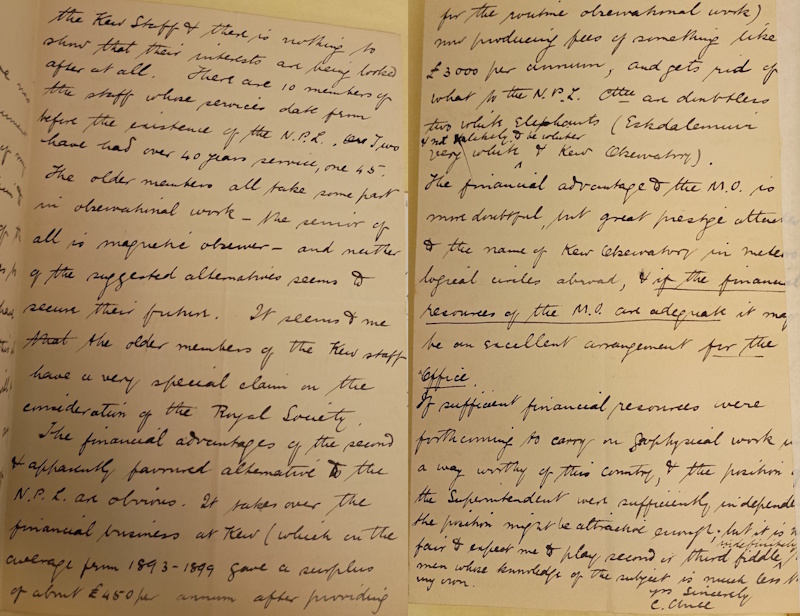 the Kew Staff & there is nothing to
show that their interests are being looked
after at all. There are 10 members of
the staff whose services date from
before the existence of the N.P.L. Two
have had over 40 years service, one 45.
The older members all take some part
in observational work – the senior of
all is magnetic observer – and neither
of the suggested alternatives seems to
secure their future. It seems to me
that the older members of the Kew staff
have a very special claim on the
consideration of the Royal Society.
The financial advantages of the second
& apparently favoured alternative to the
N.P.L. are obvious. It takes over the
financial business at Kew (which on the
average from 1893-1899 gave a surplus
of about £450 per annum after providing
for the routine observational work)
now producing fees of something like
£3000 per annum, and gets rid of
what to the N.P.L. Cttee are doubtless
two white elephants (Eskdalemuir
& not unlikely to be whiter
very white & Kew Observatory).
The financial advantage to the M.O. is
more doubtful, but great prestige
to the name of Kew Observatory in
logical circles abroad, & if the
resources of the M.O. are adequate it may
be an excellent arrangement for the
Office.
If sufficient financial resources were
forthcoming to carry on geophysical work
a way worthy of this country, & the position
the Superintendent were sufficiently
the position might be attractive enough; but it is
indefinitely
fair to expect me to play second or third fiddle
men whose knowledge of the subject is much less
my own.
yrs Sincerely
C. Chree